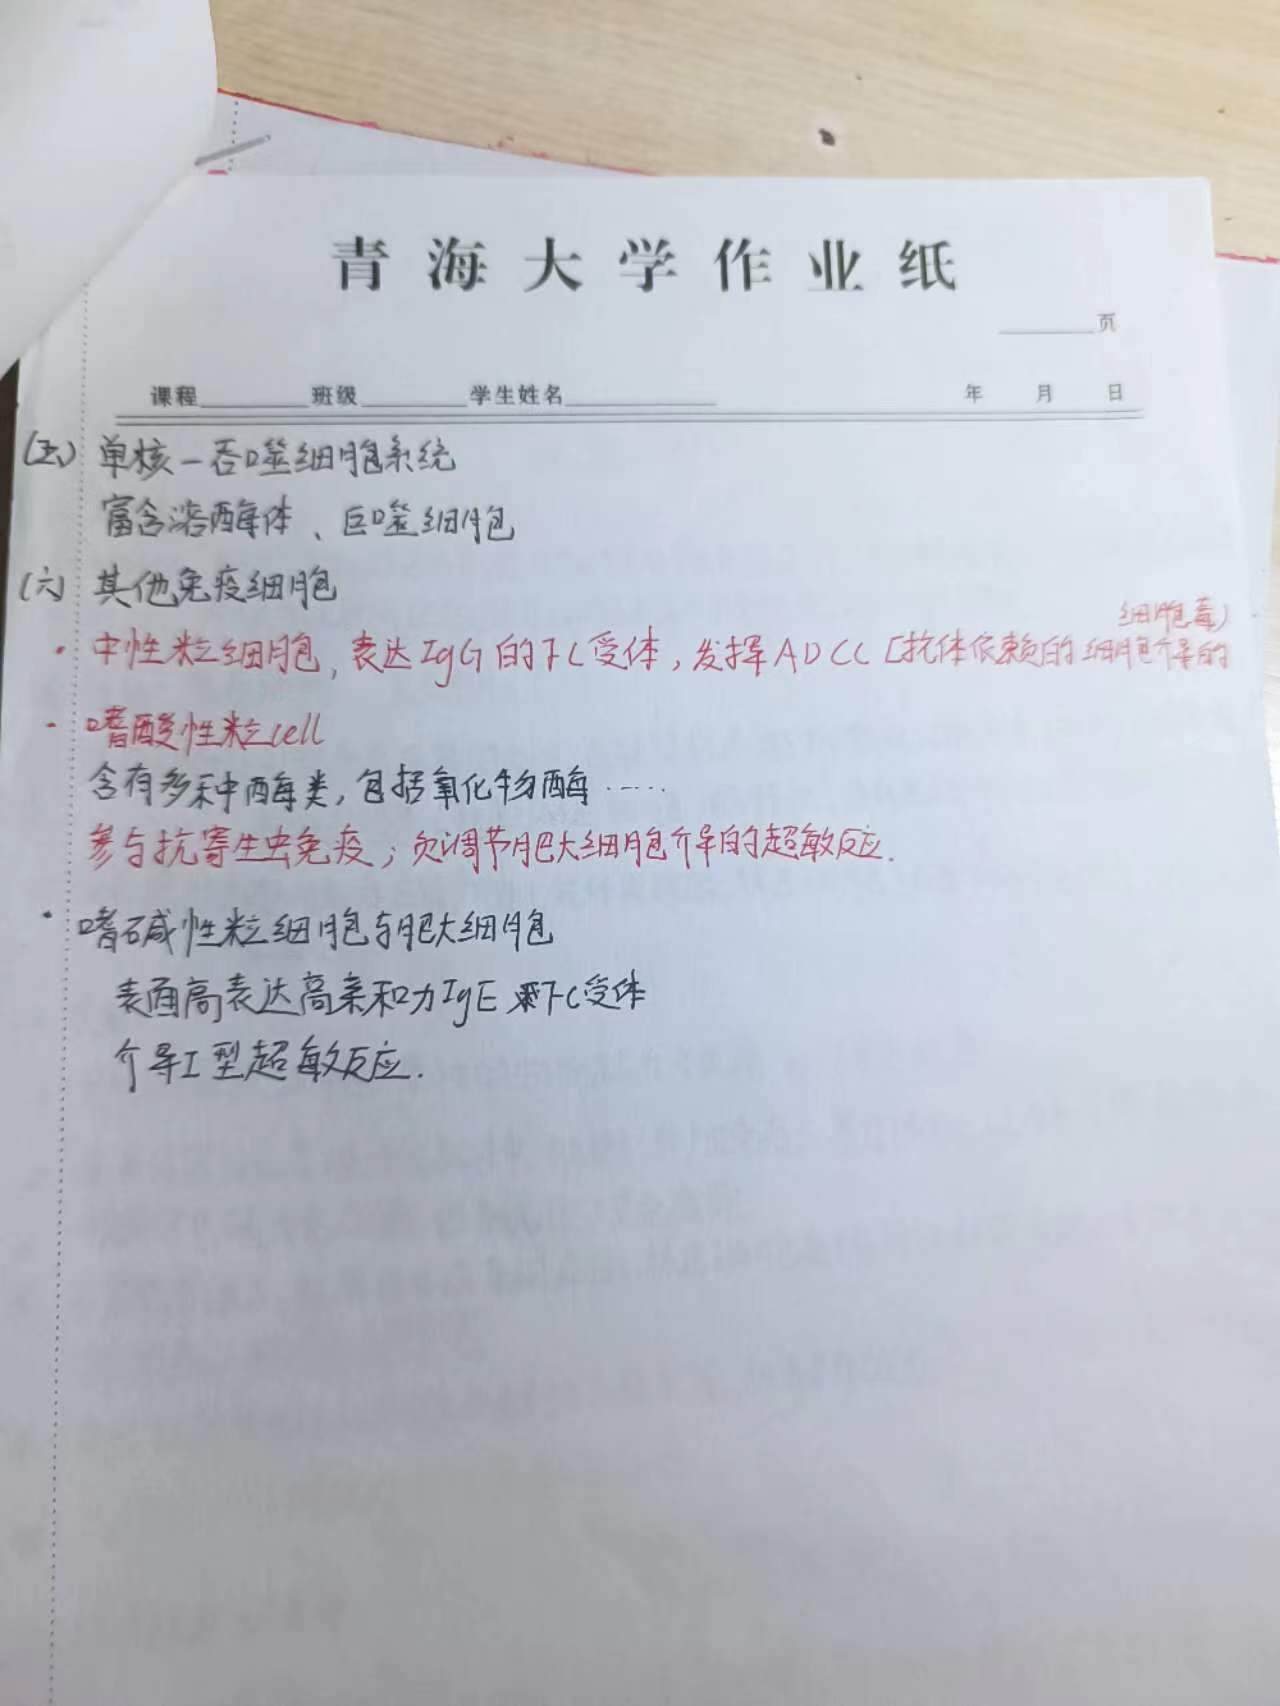 青海大学作业纸
页
课程 班级 学生姓名 年 月 日
(五) 单核-吞噬细胞系统
富含溶酶体、巨噬细胞
(六) 其他免疫细胞
细胞毒)
· 中性粒细胞,表达IgG的FC受体,发挥ADCC[抗体依赖的细胞介导的
· 嗜酸性粒cell
含有多种酶类,包括氧化物酶……
参与抗寄生虫免疫;负调节肥大细胞介导的超敏反应.
· 嗜碱性粒细胞与肥大细胞
表面高表达高亲和力IgE FC受体
介导I型超敏反应.